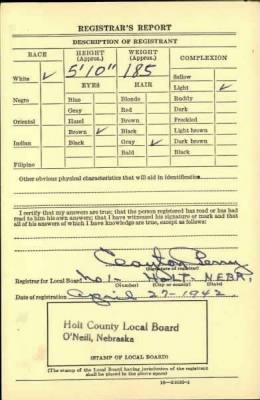 REGISTRAR'S REPORT
DESCRIPTION OF REGISTRANT
RACE HEIGHT (Approx.) WEIGHT (Approx.) COMPLEXION
5'10" 185
White ✓ Sallow
EYES HAIR Light ✓
Negro Blue Blonde Ruddy
Gray Red Dark
Oriental Hazel Brown Freckled
Brown ✓ Black Light brown
Indian Black Gray ✓ Dark brown
Bald Black
Filipino
Other obvious physical characteristics that will aid in identification
I certify that my answers are true; that the person registered has read or has had
read to him his own answers; that I have witnessed his signature or mark and that
all of his answers of which I have knowledge are true, except as follows:
Clayton Perry
(Signature of registrar)
Registrar for Local Board No. 1 - HOLT - NEBR.
(Number) (City or county) (State)
Date of registration April 27-1942
Holt County Local Board
O'Neill, Nebraska
(STAMP OF LOCAL BOARD)
(The stamp of the Local Board having jurisdiction of the registrant
shall be placed in the above space)